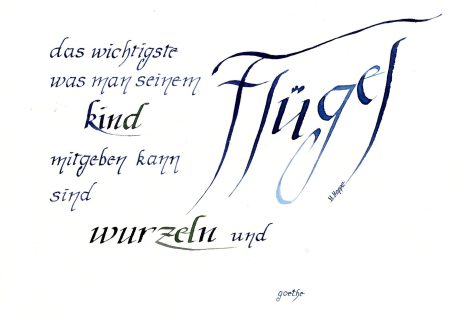 das wichtigste
was man seinem
kind
mitgeben kann
sind
wurzeln und
Flügel
goethe